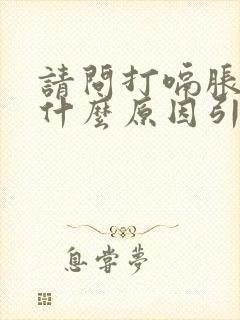 請問打嗝脹
什麼原因引
息嘗夢